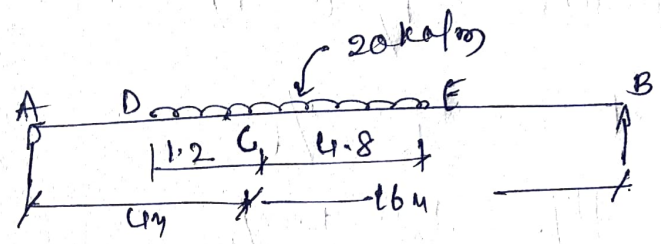 20kN/m
A D E B
1.2 C 4.8
4m 16m